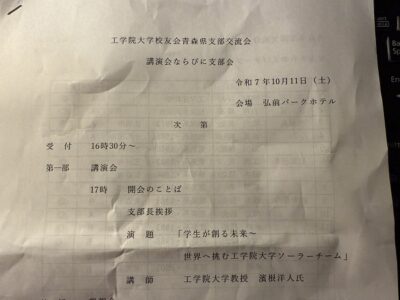 工学院大学校友会青森県支部交流会
講演会ならびに支部会
令和7年10月11日（土）
会場　弘前パークホテル
次　第
受　付　16時30分～
第一部　講演会
17時　開会のことば
支部長挨拶
演　題　「学生が創る未来～
世界へ挑む工学院大学ソーラーチーム」
講　師　工学院大学教授　濱根洋人氏